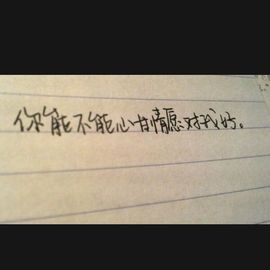 你能不能心甘情愿对我好。